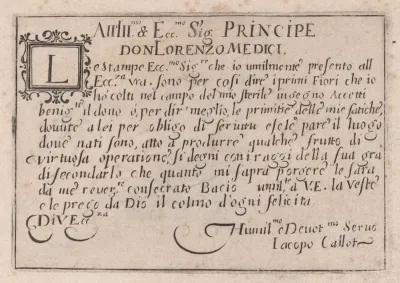 All Ill.mo & Ecc.mo Sig. PRINCIPE
DON LORENZO MEDICI.
Le Stampe Ecc.mo Sig.re che io umilmente presento all
Ecc.za vra. sono per cosi dire i primi Fiori che io
hò colti nel campo del mio sterile ingegno Accetti
benig.te il dono ò, per dir meglio, le primitie delle mie fatiche,
douute a lei per obligo di seruitu e se le pare il luogo
doue nati sono, atto a produrre qualche frutto di
virtuosa operatione, si degni con i raggi della sua gra
di secondarlo che quanto mi saprà porgere le sarà
da me reuer.te consecrato Bacio umil.te a V.E. la Veste
e le prego da Dio il colmo d'ogni felicità
Di V. Ecc.za
Humil.mo e Deuot.mo Seruo
Iacopo Callot